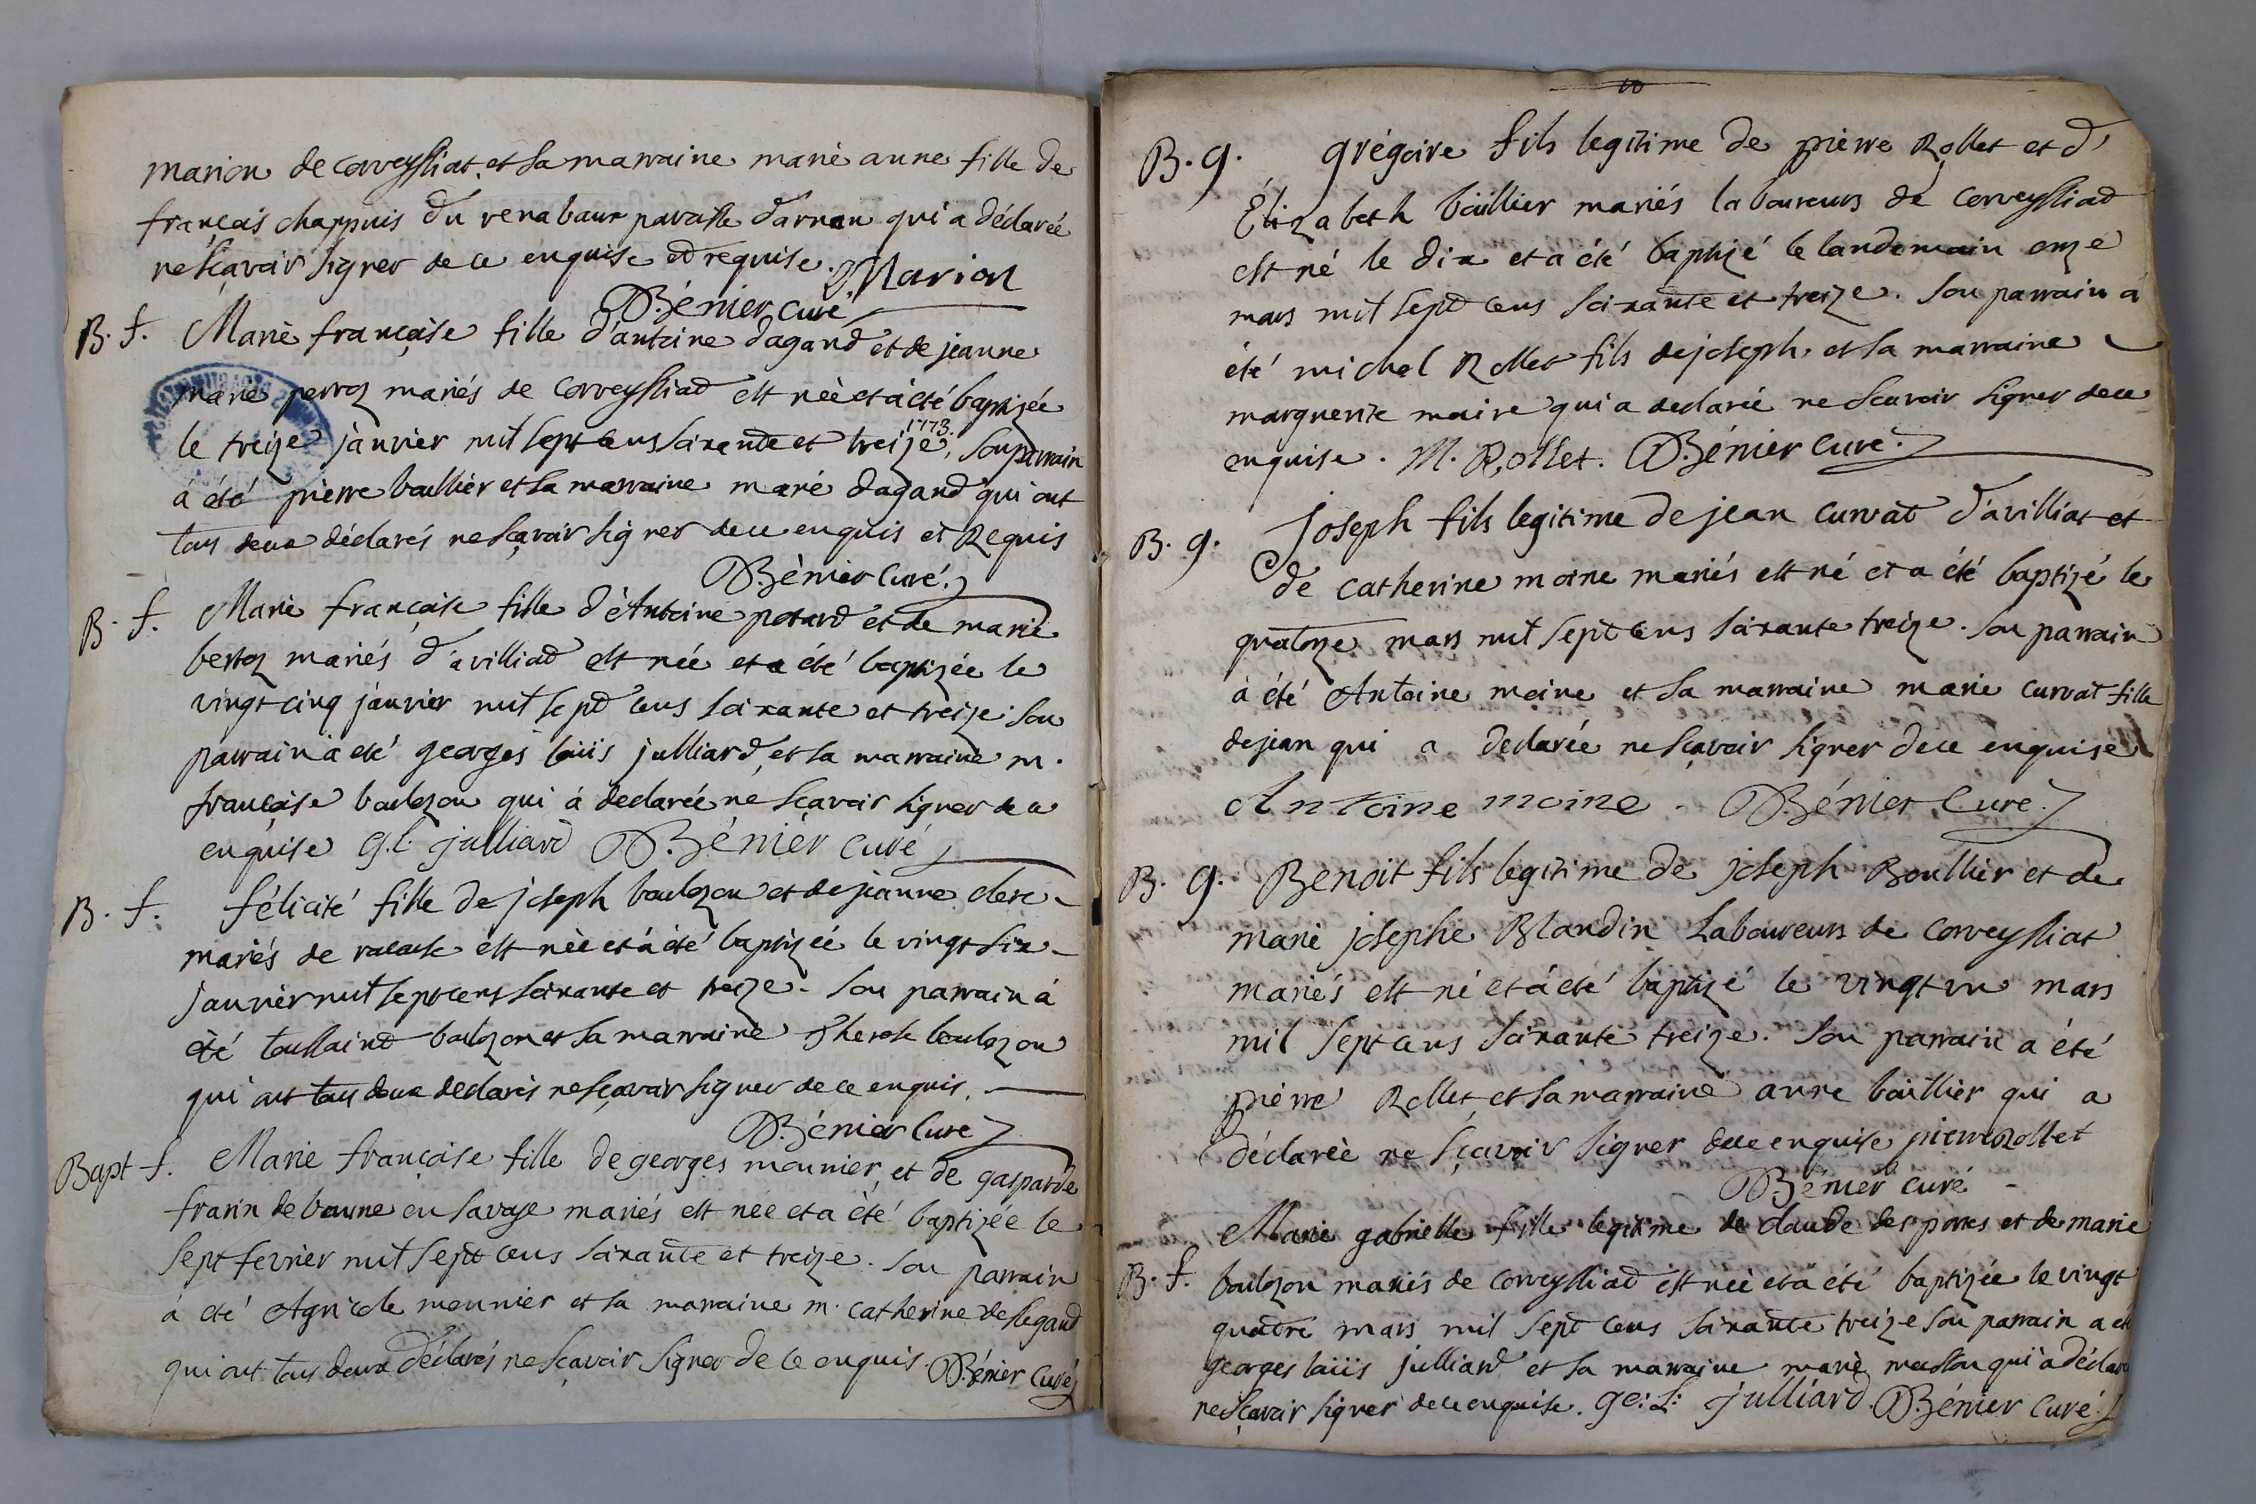 marion de corveyssiat. et sa marraine marie anne fille de
francois chappuis du paroisse d'arnan qui a déclareé
ne sçavoir signer de ce enquise et requise. Marion
Bénier curé
B. f. Marie françoise fille d'antoine dagand et de jeanne
marie perroz mariés de Corveyssiad est neè et a eté baptizeé
le treize janvier mil sept cens soixante et treize, 1773. son parrain
à été pierre boullier et sa marraine marie dagand qui ont
tous deux déclarés ne sçavoir signer de ce enquis et Requis
Bénier Curé
B. f. Marie françoise fille d'Antoine potard et de marie
bertoz mariés d'avilliad est née et a été baptizée le
vingt cinq janvier mil sept cens soixante et treize son
parrain à eté georges loüis julliard, et sa marraine m.
françoise boulozon qui à declareé ne sçavoir signer de ce
enquise G. l. julliard Bénier Curé
B. f. félicité fille de joseph boulozon et de jeanne clerc
mariés de racouse est nèe et à été baptizeé le vingt six
janvier mil sept cens soixante et treize. son parrain à
été toussaind boulozon et sa marraine therese boulozon
qui ont tous deux declarés ne sçavoir signer de ce enquis.
Bénier Curé
Bapt f. Marie françoise fille de georges mounier, et de gasparde
frarin de en savoye mariés est neé et a été baptizée le
sept fevrier mil sept cens soixante et treize. son parrain
à eté Agricole mounier et sa marraine m. catherine
qui ont tous deux déclarés ne sçavoir signer de ce enquis. Bénier Curé
10
B. g. grégoire fils legitime de pierre Rollet et d'
Élizabeth boullier mariés laboureurs de Corveyssiad
est né le dix et a été baptizé le landemain onze
mars mil sept cens soixante et treize. son parrain à
été michel Rollet fils de joseph, et sa marraine
marguerite maire qui a declareé ne sçavoir signer de ce
enquise. M. Rollet. Bénier Curé
B. g. Joseph fils legitime de jean curvat d'avilliat et
de catherine moine mariés est né et a été baptizé le
quatorze mars mil sept cens soixante treize. son parrain
à été Antoine moine et sa marraine marie curvat fille
de jean qui a declareé ne sçavoir signer de ce enquise
Antoine moine. Bénier Curé
B. g. Benoit fils legitime de joseph Boullier et de
marie josephe Blandin Laboureurs de Corveyssiat
mariés est né et à eté baptizé le vingt un mars
mil sept cens soixante treize. son parrain a été
pierre Rollet, et sa marraine anne boullier qui a
déclareè ne sçavoir signer de ce enquise pierre Rollet
Bénier curé
Marie gabrielle fille legitime de claude des portes et de marie
B. f. boulozon mariés de Corveyssiad est neè et a été baptizée le vingt
quatre mars mil sept cens soixante treize son parrain a été
georges loüis julliard et sa marraine marie qui a déclaré
ne sçavoir signer de ce enquise. ge: L: julliard. Bénier Curé